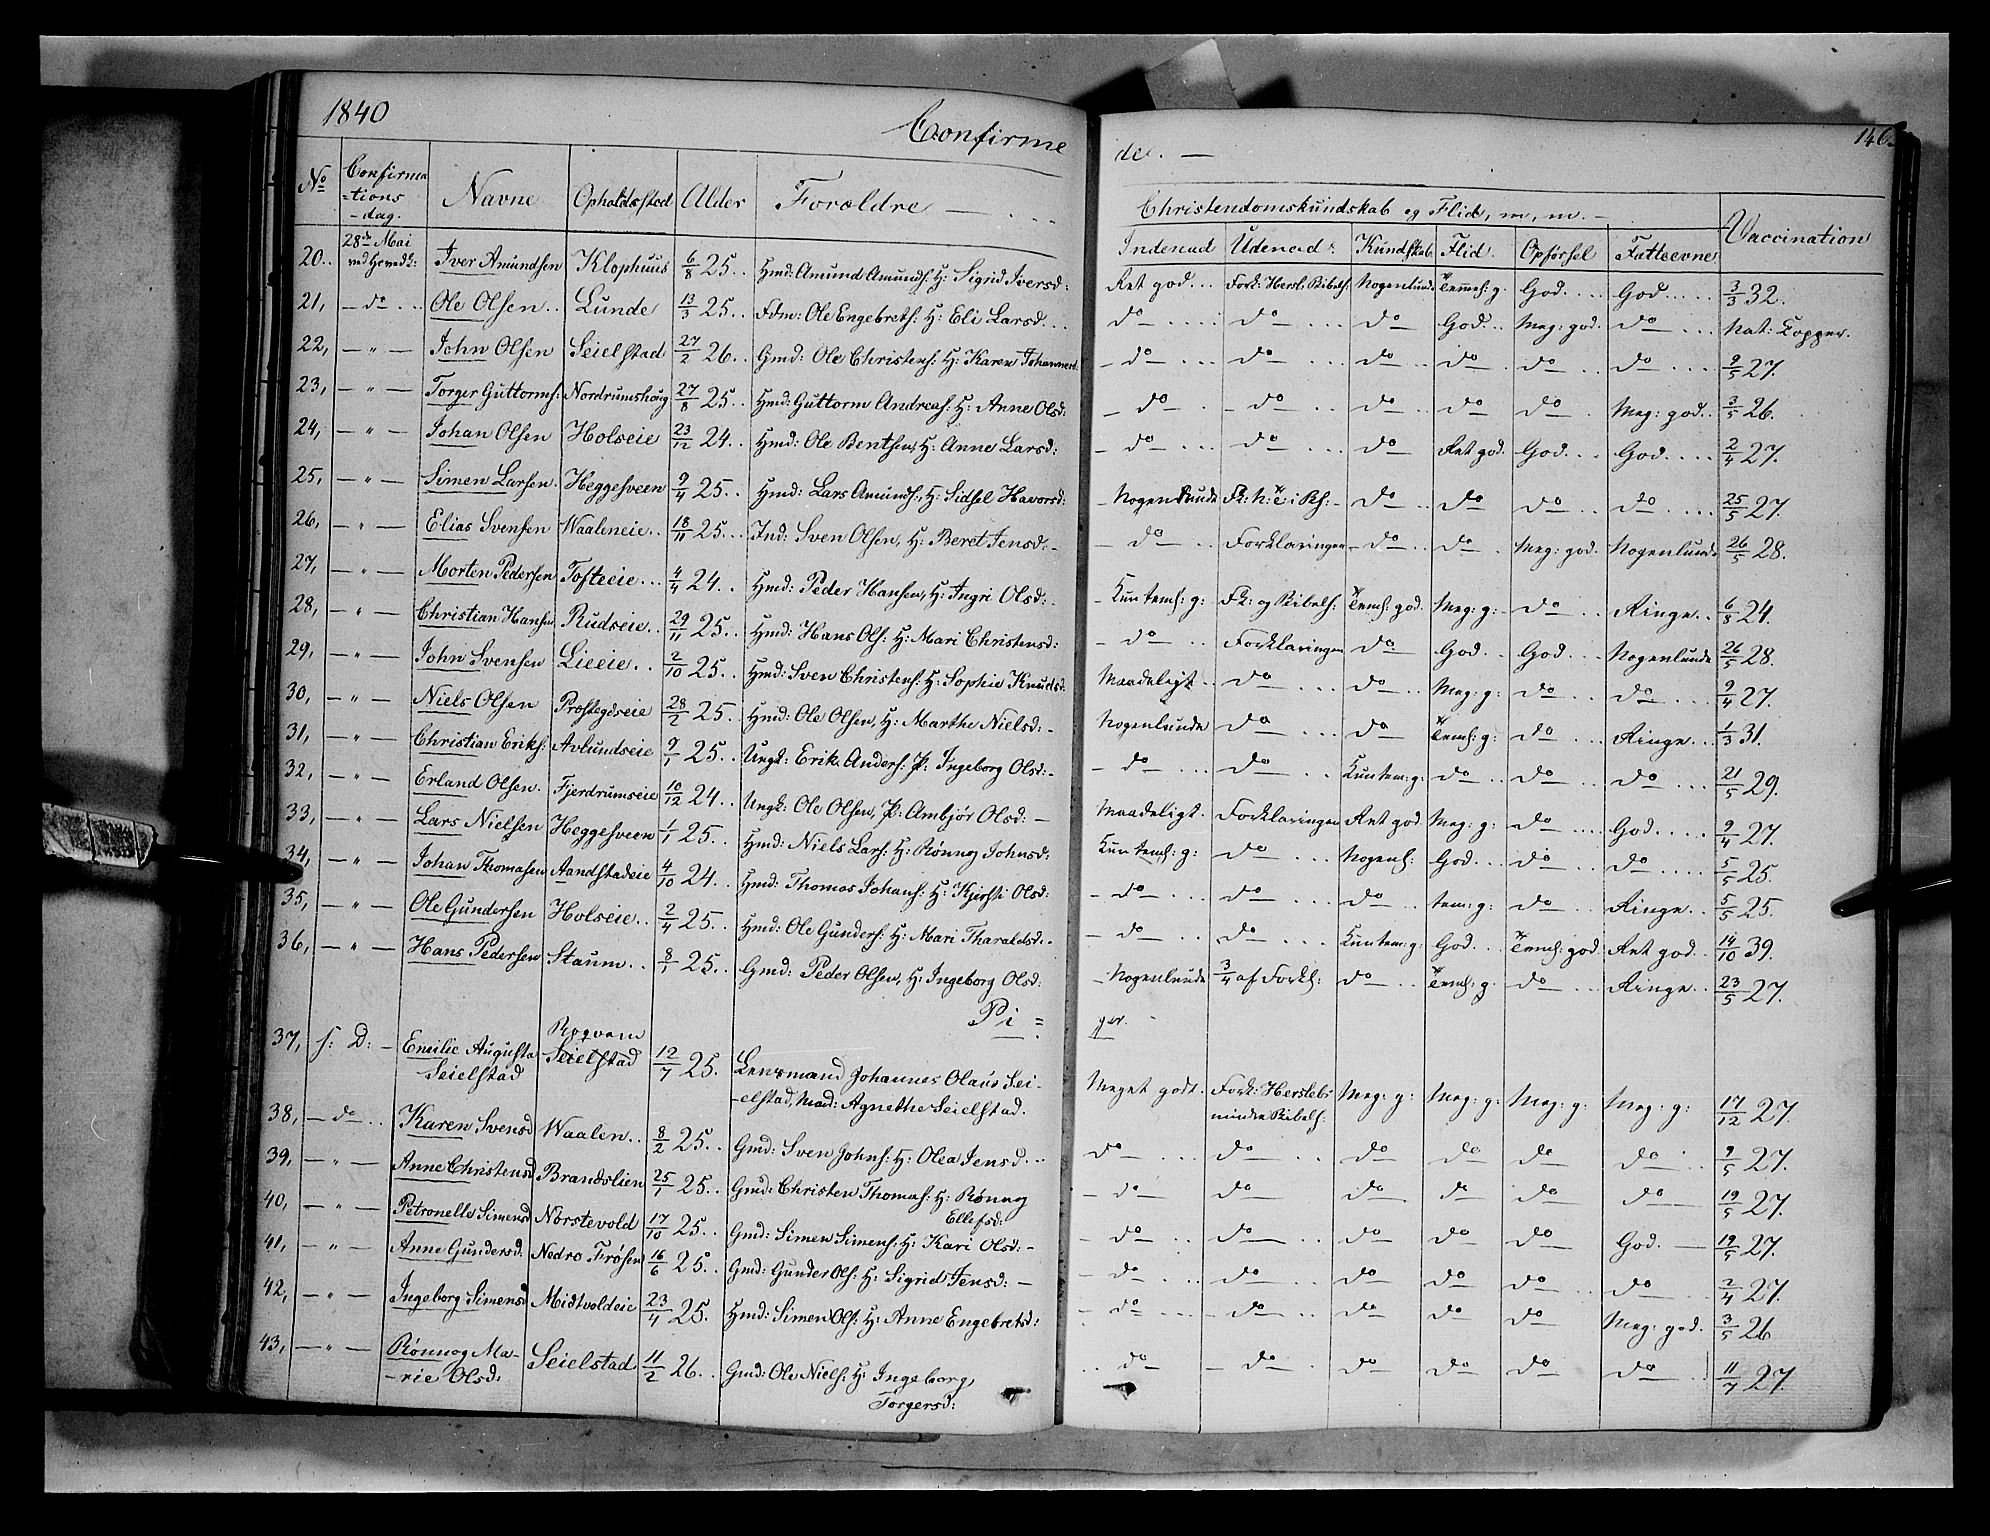 1840
Confirme
de. —
146
No
Confirma
-tions
-dag.
Navne
Opholdsstad
Alder
Forældre —
Christendomskundskab og Flid, m, m. -
Indenad Udenad. Kundskab Flid. Opførsel Fatteevne
Vaccination
28de Mai
20.. ved Hovedk: Iver Amundsen Klophuus 6/8 25.. Hmd: Amund Amunds: H: Sigrid Iversd: Ret god... Fork: Hersl. Bibelh: Nogenlunde Temmel: g. God.... God..... 3/3 32.
21, — do .. Ole Olsen.. Lunde 13/3 25.. Fdm: Ole Engebreths: H: Eli Larsd... do .... do ... do God.. Meg: god. do ... Nat: Kopper.
22, — " — John Olsen Seielstad 27/2 26.. Gmd: Ole Christens: H: Karen Johannesd. - do ... do ... do do do do .... 9/5 27.
23, — " — Torger Guttorms: Nordrumshoug 27/8 25.. Hmd: Guttorm Andreas: H: Anne Olsd: - do . - do .. do do do . Meg: god.. 3/5 26.
24, — " — Johan Olsen Holseie 23/12 24.. Hmd: Ole Bentsen, H: Anne Larsd: - do ... do .. do Ret god. God... God.... 2/4 27.
25, — " — Simen Larsen. Heggesveen 9/4 25.. Hmd: Lars Amunds:, H: Sidsel Havorsd: - Nogenlunde do do do do .... 25/5 27.
26, — " — Elias Svensen Waaleneie.. 18/11 25.. Ind: Sven Olsen, H: Beret Jensd:- - do .. Forklaringen - do .. do . Meg: god. Nogenlunde 26/5 28.
27, — " — Morten Pedersen Tofteeie... 4/4 24.. Hmd: Peder Hansen, H: Ingri Olsd:. - Kun temh: g: Fk: og Bibelh: Temh: god. Meg: g:- do .. Ringe.. 6/8 24.
28, — " — Christian Hansen Rudseie.. 29/11 25.. Hmd: Hans Ols: H: Mari Christensd: - do .. Forklaringen do .. God.. God... Nogenlunde 26/5 28.
29, — " — John Svensen Lieeie.. 2/10 25.. Hmd: Sven Christens: H: Sophie Knudsd. Maadeligt.. do ... do .. Meg: g: do .. do .... 9/4 27.
30, — " — Niels Olsen Præstegdseie 28/2 25.. Hmd: Ole Olsen, H: Marthe Nielsd:- Nogenlunde do .. do Temh: g: do .. Ringe... 1/3 31.
31, — " — Christian Eriks: Avlundseie 9/1 25.. Ungk: Erik Anders: P: Ingeborg Olsd:- - do ... do ... Kun tem: g: do .. do .. do ... 21/5 29.
32, — " — Erland Olsen. Fjerdrumseie 10/12 24.. Ungk: Ole Olsen, P: Ambjør Olsd: — Maadeligt. Forklaringen Ret god Meg: g: do .... God..... 9/4 27.
33, — " — Lars Nielsen Heggesveen 1/1 25.. Hmd: Niels Lars: H: Rønnog Johnsd: Kun temh: g: do ... Nogenh: God... do .. do .... 5/5 25.
34, — " — Johan Thomasen Aandstadeie 4/10 24.. Hmd: Thomas Johans: H: Kjersti Olsd: - do .. do ... do .. tem: g: do .. Ringe.. 5/5 25.
35, — " — Ole Gundersen Holseie.. 2/4 25.. Hmd: Ole Gunders: H: Mari Tharaldsd:. - do .. do .. Kun tem: g: God... Temh: god Ret god.. 14/10 39.
36, — " — Hans Pedersen Staum.. 8/1 25.. Gmd: Peder Olsen, H: Ingeborg Olsd: - Nogenlunde 3/4 af Forkl: do .. Temh: g. do .. Ringe.. 23/5 27.
Pi =
ger.
37, s: D: - Emilie Augusta Seielstad 12/7 25. Lensmand Johannes Olaus Sei-
Seielstad -elstad, Mad: Agnethe Seielstad.
Meget godt. Fork: Herslebs Meg: g: Meg: g: Meg: g: Meg: g: 17/12 27.
mindre Bibelh:
38, — do .. Karen Svensd Waalen.. 8/2 25.. Gmd: Sven Johns: H: Olea Jensd... do - do .. do do do do .. 9/5 27.
39, — " — Anne Christensd Brandslien 25/1 25.. Gmd: Christen Thomas: H: Rønnog
Ellefsd:
- do do do do do do 19/5 27.
40, — " — Petronelle Simensd Norstevold 17/10 25.. Gmd: Simen Simens: H: Kari Olsd: - - do .. do .. do do do God. — 19/5 27.
41, — " — Anne Gundersd. Nedre Frøsen 16/6 25.. Gmd: Gunder Ols: H: Sigrid Jensd: — - do ... do .. do do do .. do ... 2/4 27.
42, — " — Ingeborg Simensd Midtvoldeie 23/4 25. Hmd: Simen Ols: H: Anne Engebretsd: - do ... - do .. do do do Meg: god. 3/5 26
43, — " — Rønnog Ma- Seielstad 11/2 26.. Gmd: Ole Niels: H: Ingeborg,
-rie Olsd: Torgersd:
.. do — - do . do do do do ... 11/7 27.